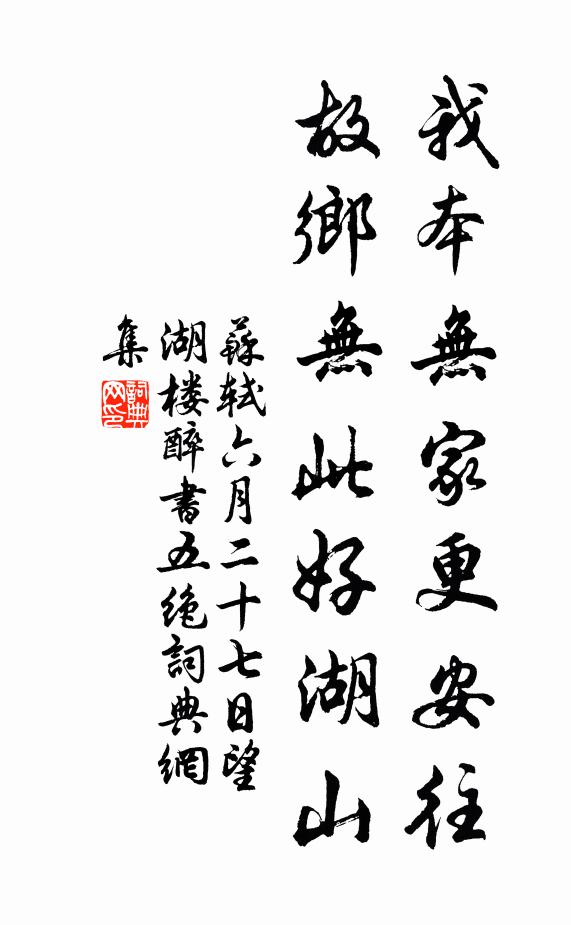 我本無家更安往
故鄉無此好湖山
蘇軾六月二十七日望
湖楼醉書五绝詞典網
集
詞典网印